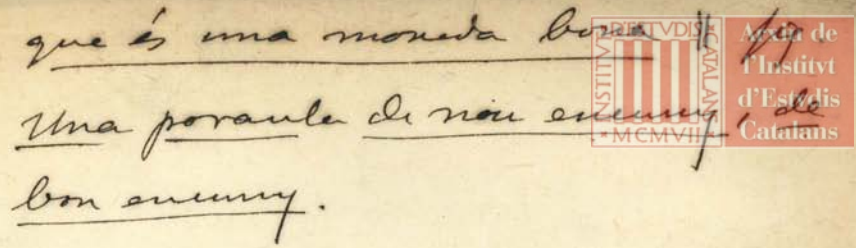 que és una moneda bona || fg.
Una paraula de nou encuny, de
bon encuny.
INSTITVT D'ESTVDIS CATALANS
MCMVII
Arxiu de
l'Institvt
d'Estvdis
Catalans